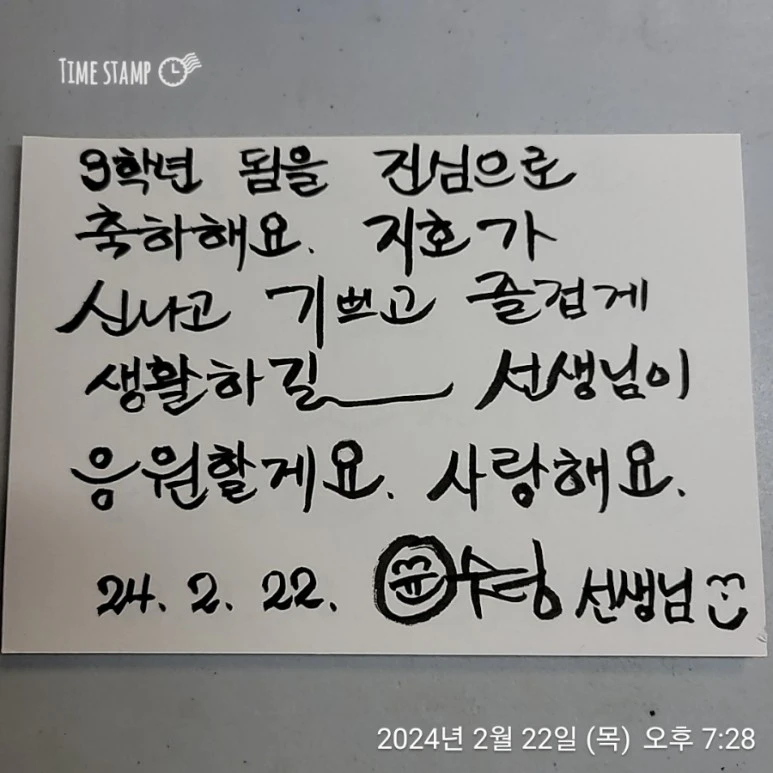 TIME STAMP
3학년 됨을 진심으로
축하해요. 지호가
신나고 기쁘고 즐겁게
생활하길 선생님이
응원할게요. 사랑해요.
24. 2. 22. 선생님
2024년 2월 22일 (목) 오후 7:28